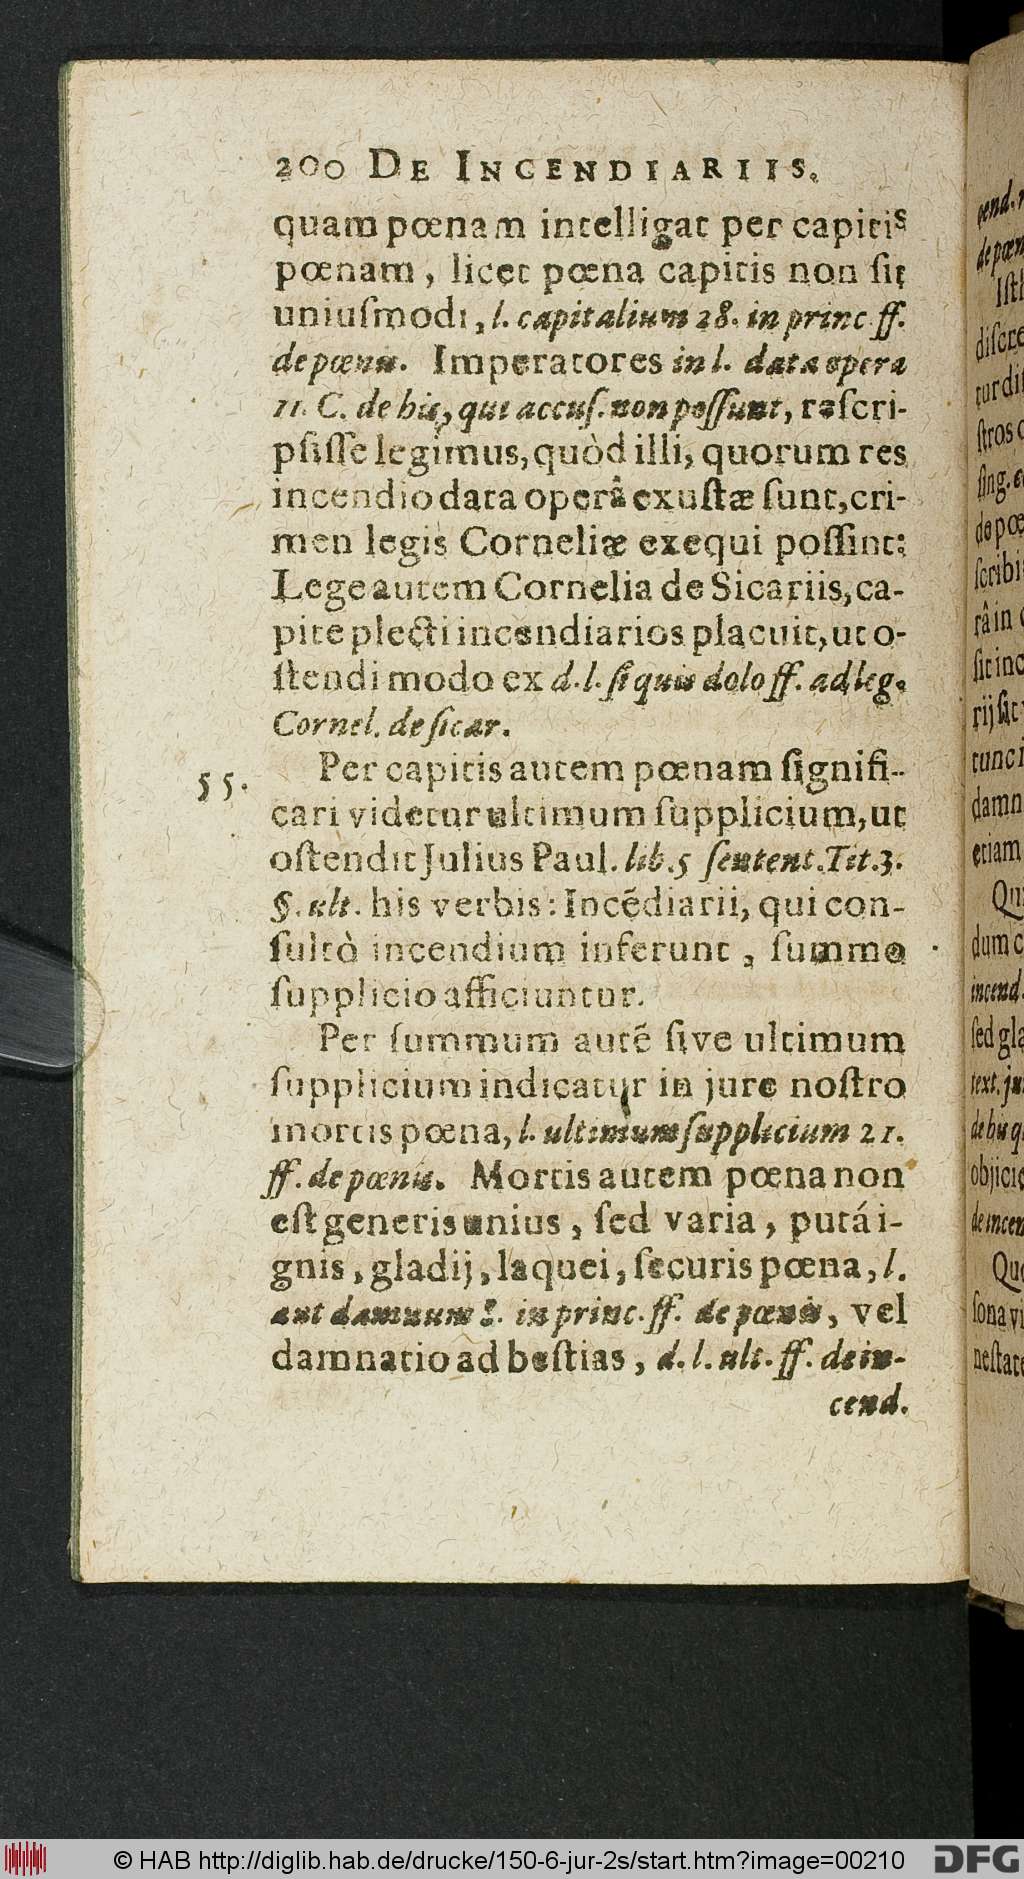 200 DE INCENDIARIIS.
quam pœnam intelligat per capitis
pœnam, licet pœna capitis non ſit
uniuſmodi, l. capitalium 28. in princ ff.
de pœnis. Imperatores in l. data opera
11. C. de his, qui accuſ. non poſſunt, reſcri-
pſiſſe legimus, quòd illi, quorum res
incendio data operâ exuſtæ ſunt, cri-
men legis Corneliæ exequi poſſint:
Lege autem Cornelia de Sicariis, ca-
pite plecti incendiarios placuit, ut o-
ſtendi modo ex d. l. ſi quis dolo ff. ad leg.
Cornel. de ſicar.
55. Per capitis autem pœnam ſignifi-
cari videtur ultimum ſupplicium, ut
oſtendit Julius Paul. lib. 5 ſentent. Tit. 3.
§. ult. his verbis: Incẽdiarii, qui con-
ſultò incendium inferunt, ſummo
ſupplicio afficiuntur.
Per ſummum autẽ ſive ultimum
ſupplicium indicatur in jure noſtro
mortis pœna, l. ultimum ſupplicium 21.
ff. de pœnis. Mortis autem pœna non
eſt generis unius, ſed varia, putá i-
gnis, gladij, laquei, ſecuris pœna, l.
aut damnum 8. in princ. ff. de pœnis, vel
damnatio ad beſtias, d. l. ult. ff. de in-
cend.
© HAB http://diglib.hab.de/drucke/150-6-jur-2s/start.htm?image=00210
DFG